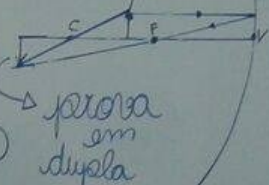 C F V
prova
em
dupla